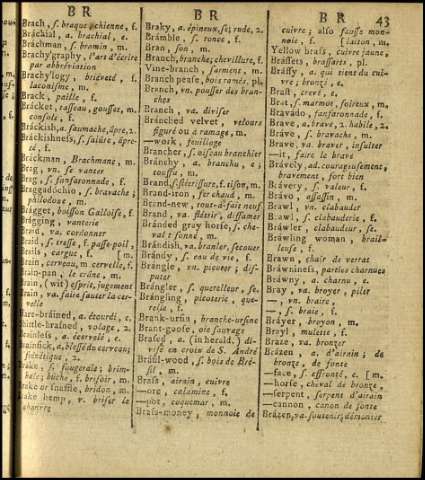 B R
B R
B R
43
Brach, s. braque, chienne, f.
Bráchial, a. brachial, e.
Bráchman, s. bromin, m.
Brachy'graphy, l'art d'écrire
par abbréviation
Brachy'logy, briéveté, f.
laconisme, m.
Brack, paille, f.
Brácket, tasseau, gousset, m.
console, f.
Bráckish, a. saumache, âpre, 2.
Bráckishness, s. salûre, âpre-
té, f.
Bráckman, Brachmane, m.
Brag, vn. se vanter
Brag, s. fanfaronnade, f.
Braggadóchio, s. bravache,
Brágget, boisson Galloise, f.
Brágging, vanterie
Braid, va. cordonner
Braid, s. tresse, f. passe-poil,
Brails, cargue, f. [m.
Brain, cerveau, m. cervelle, f.
Brain-pan, le crâne, m.
Brain, (wit) esprit, jugement
Brain, va. faire sauter la cer-
velle
Hare-brained, a. étourdi, e.
Shittle-brained, volage, 2.
Brainless, a. écervelé, e.
Brainsick, a. blessé du cerveau;
frénétique, 2.
Brake, s. fougeraie; brim-
bale; bûche, f. brisoir, m.
Brake or snaffle, bridon, m.
Brake hemp, v. briser le
chanvre
Bráky, a. épineux, se; rude, 2.
Brámble, s. ronce, f.
Bran, son, m.
Branch, branche; chevillure, f.
Vine-branch, sarment, m.
Branch pease, bois ramés, pl.
Branch, vn. pousser des bran-
ches
Branch, va. diviser
Bránched velvet, velours
figuré ou à ramage, m.
—work, feuillage
Brancher, s. oiseau branchier
Bránchy, a. branchu, e;
touffu, m.
Brand, s. flétrissure, f. tison, m.
Brand-iron, fer chaud, m.
Brand-new, tout-à-fait neuf
Brand, va. flétrir, diffamer
Bránded gray horse, s. che-
val tisonné, m.
Brándish, va. branler, secouer
Brándy, s. eau de vie, f.
Brangle, vn. picoter; dis-
puter
Brángler, s. querelleur, se.
Brángling, picoterie, que-
relle, f.
Brank-ursin, branche-ursine
Brant-goose, oie sauvage
Brased, a. (in herald.) di-
visé en croix de S. André
Brasil-wood, s. bois de Bré-
sil, m.
Brass, airain, cuivre
—ore, calamine, f.
—pot, coquemar, m.
Brass-money, monnoie de
cuivre; also fausse mon-
noie, f. [laiton, m.
Yellow brass, cuivre jaune,
Brássets, brassarts, pl.
Brássy, a. qui tient du cui-
vre; bronzé, e.
Brast, crevé, e.
Brat, s. marmot, foireux, m.
Bravádo, fanfaronnade, f.
Brave, a. brave, 2. habile, 2.
Brave, s. bravache, m.
Brave, va. braver, insulter
—it, faire le brave
Brávely, ad. courageusement,
bravement, fort bien
Brávery, s. valeur, f.
Brávo, assassin, m.
Brawl, vn. clabauder
Brawl, s. clabauderie, f.
Bráwler, clabaudeur, se.
Bráwling woman, brail-
leuse, f.
Brawn, chair de verrat
Bráwniness, parties charnues
Bráwny, a. charnu, e.
Bray, va. broyer, piler
—, vn. braire,
—, s. braie, f.
Bráyer, broyon, m.
Brayl, mulette, f.
Braze, va. bronzer
Brázen, a. d'airain; de
bronze, de fonte
—face, s. effronté, e. [m.
—horse, cheval de bronze,
—serpent, serpent d'airain
—cannon, canon de fonte
Brázen, va. soutenir; démonter